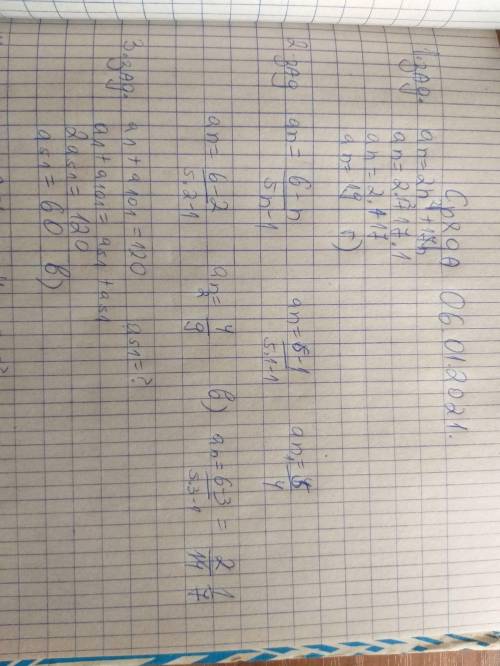 Сряда 06.01.2021.
1.зад. an = 2n² + 17n
an = 2.1² + 17.1
an = 2.1 + 17
an = 19 б)
2.зад an = 6-n/5n-1 an = 6-1/5.1-1 an₁ = 5/4
an = 6-2/5.2-1 an₂ = 4/9 в) an = 6-3/5.3-1 = 2/14 1/7
3.зад. a1 + a101 = 120 a51 = ?
a1 + a101 = a51 + a51
2a51 = 120
a51 = 60 в)